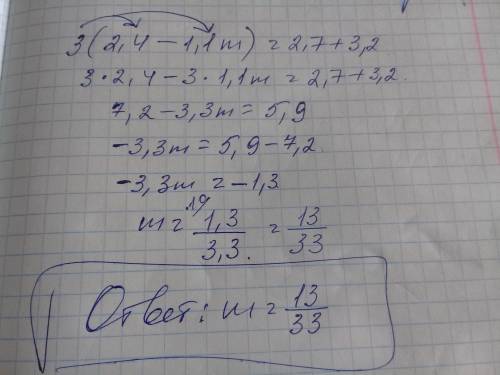 3(2,4 − 1,1m) = 2,7 + 3,2
3·2,4 − 3·1,1m = 2,7 + 3,2.
7,2 − 3,3m = 5,9
−3,3m = 5,9 − 7,2.
−3,3m = −1,3
m = 1,3/3,3. = 13/33
Ответ: m = 13/33